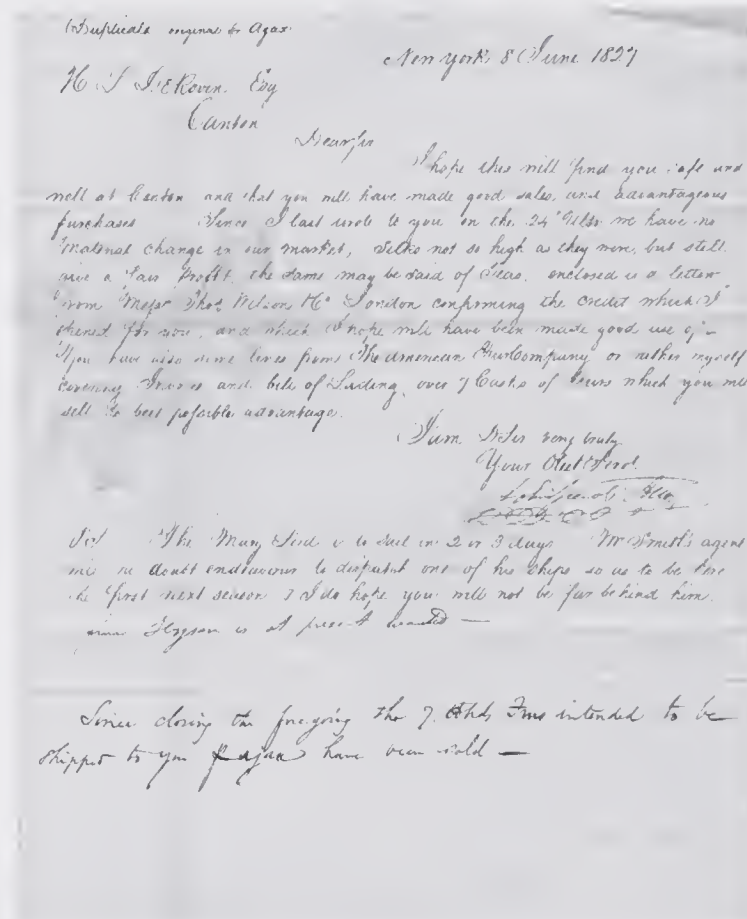 (Duplicate original p Ajax
New York 8 June 1827
H I DeKoven Esq
Canton
Dear Sir
I hope this will find you safe and
well at Canton and that you will have made good sales, and advantageous
purchases Since I last wrote to you on the 24 Ulto we have no
material change in our market, Silks not so high as they were, but still
give a fair Profitt, the same may be said of Teas. enclosed is a letter
from Messr Thos Wilson & Co London confirming the credit which I
opened for you, and which I hope will have been made good use of -
You have also some lines from The American Fur Company or rather myself
covering Invoice and bill of Lading, over 7 Casks of Furs which you will
sell to best possible advantage.
I am D Sir very truly
Your Obt Servt
Sir The is to sail in 2 or 3 days Mr Smith's agent
will no doubt endeavour to dispatch one of his ships so as to be here
the first next season & I do hope you will not be far behind him.
Hyson is at present wanted —
Since closing the foregoing the 7 Hhds Furs intended to be
shippd to you p Ajax have been sold —